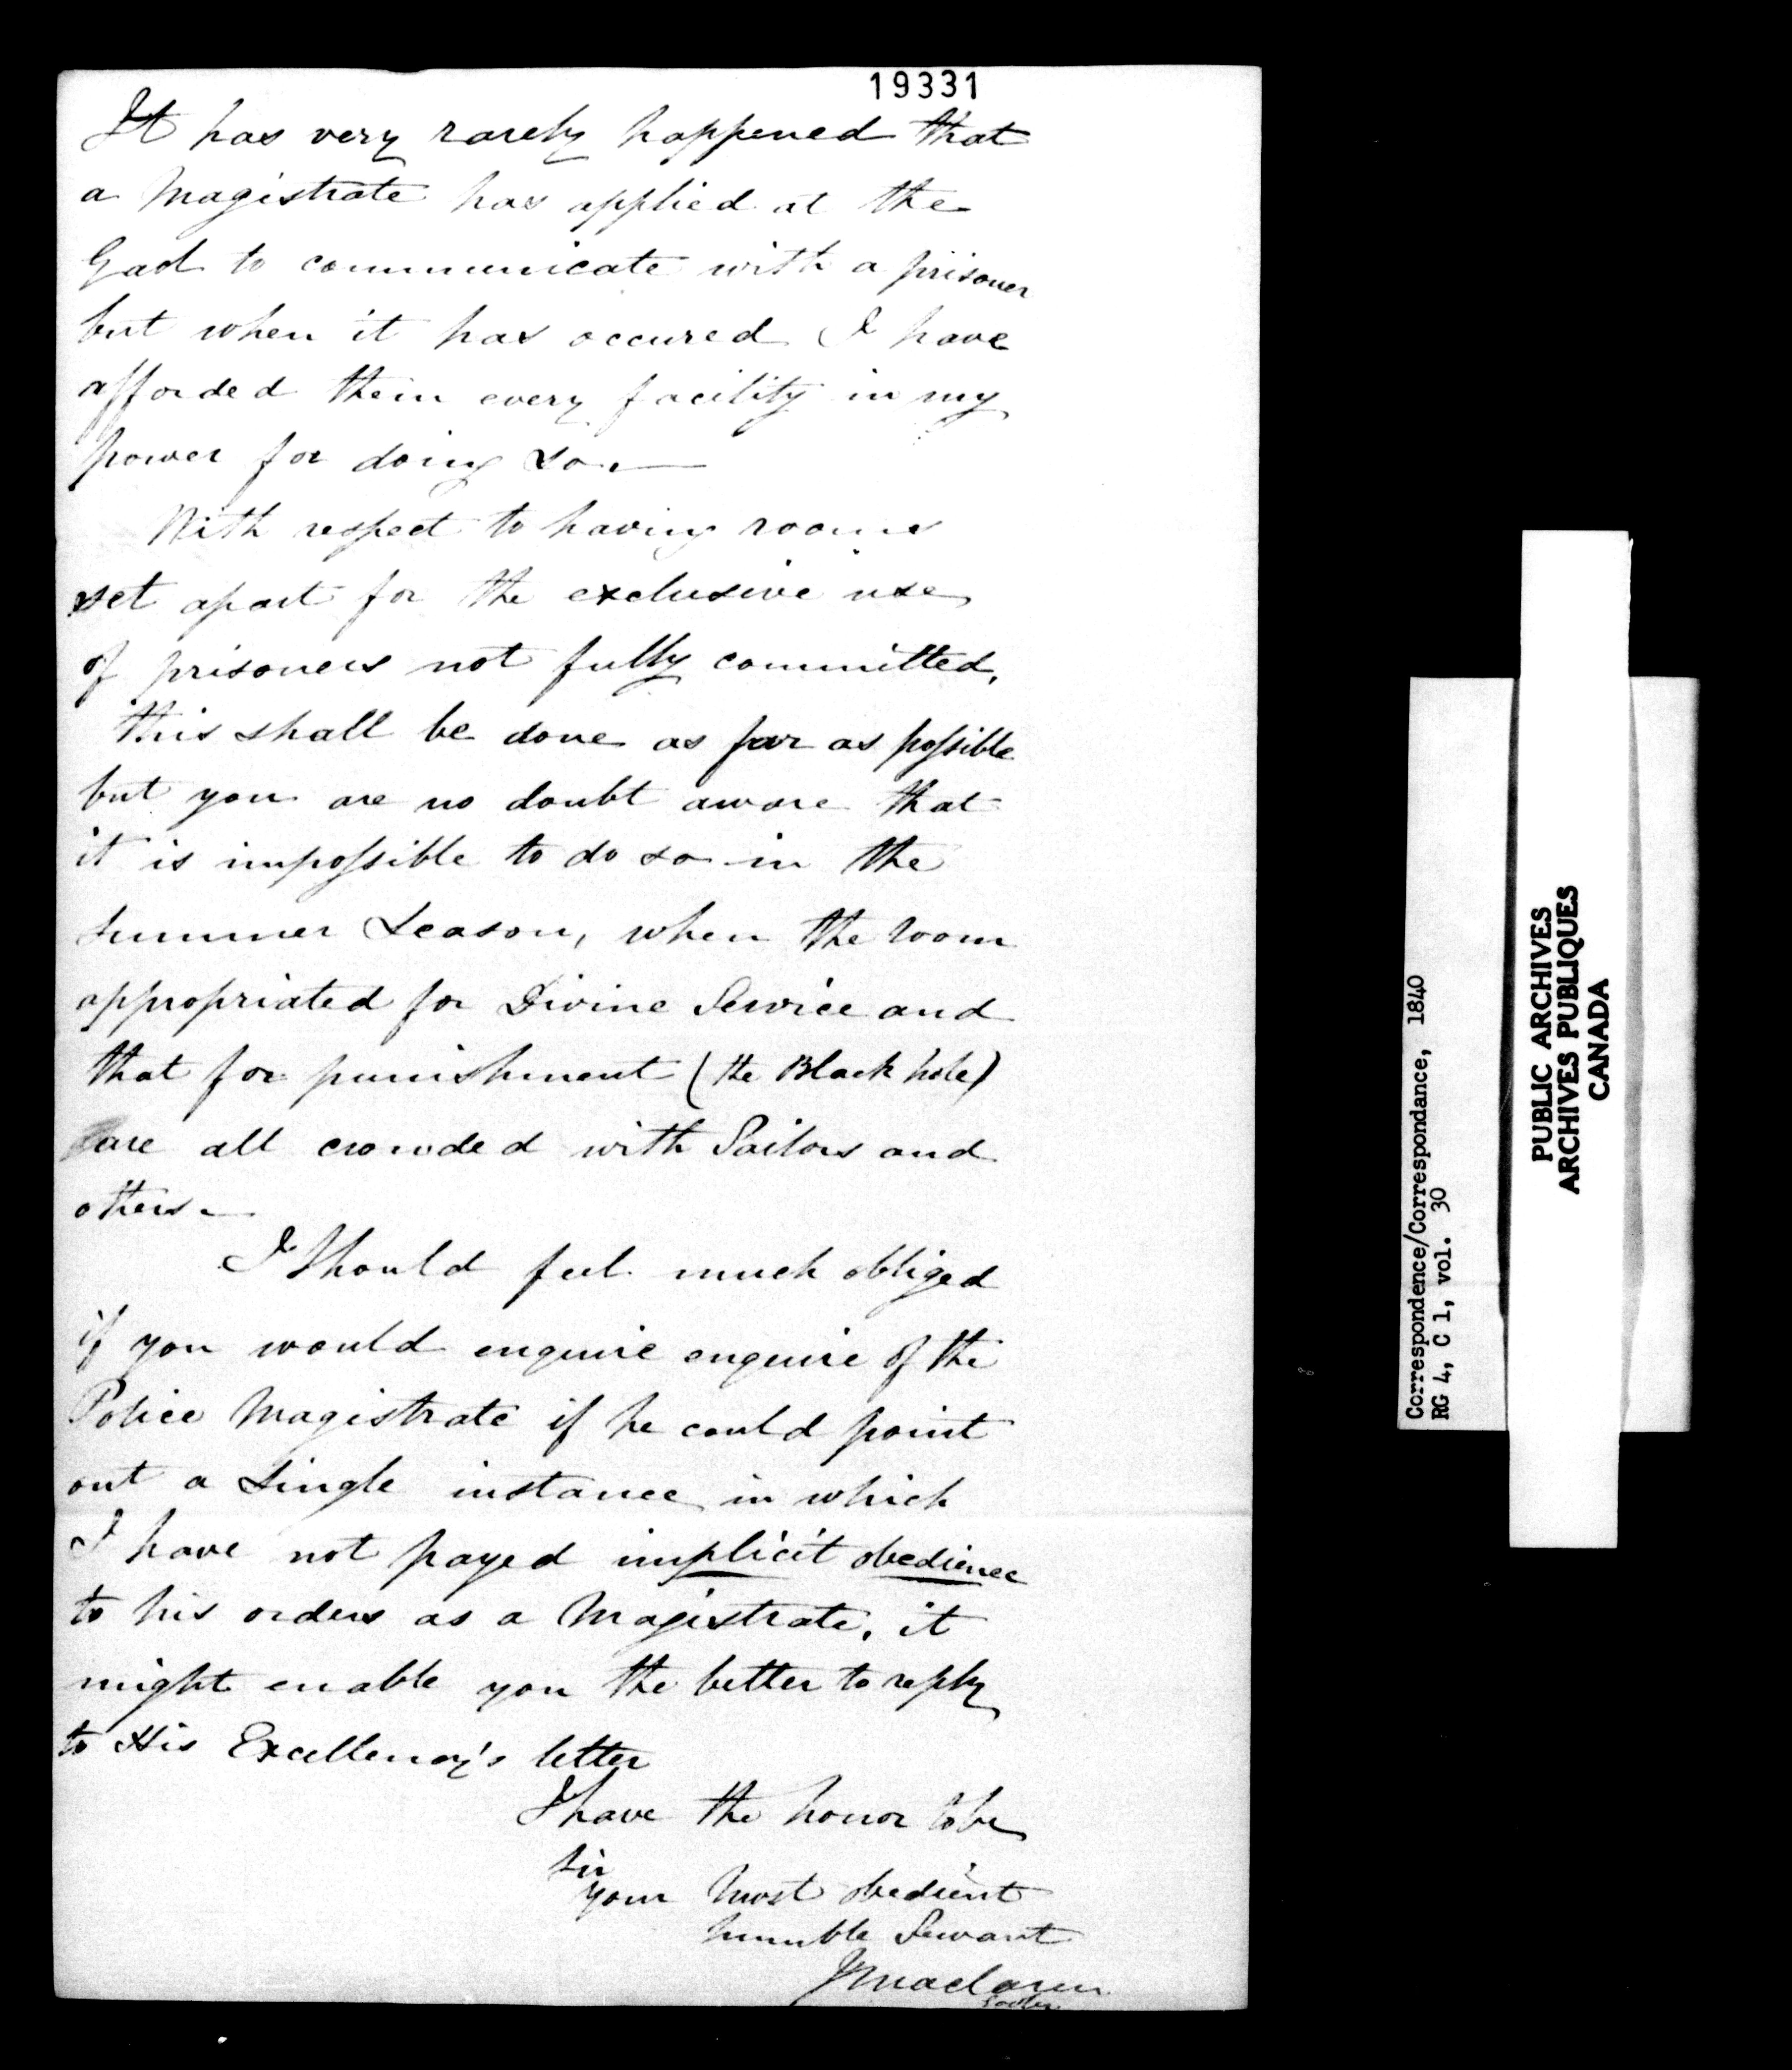 19331
It has very rarely happened that
a Magistrate has applied at the
Gaol to communicate with a prisoner
but when it has occured I have
afforded them every facility in my
power for doing so.
With respect to having rooms
set apart for the exclusive use
of prisoners not fully committed,
this shall be done as far as possible
but you are no doubt aware that
it is impossible to do so in the
Summer Season, when the room
appropriated for Divine Service and
that for punishment (the Black hole)
are all crowded with Sailors and
others.
I Should feel much obliged
if you would enquire enquire of the
Police Magistrate if he could point
out a Single instance in which
I have not payed implicit obedience
to his orders as a Magistrate, it
might enable you the better to reply
to His Excellency's letter
I have the honor to be
Sir
your most obedient
humble Servant
J Maclaren
Gaoler
Correspondence/Correspondance, 1840
RG 4, C 1, vol. 30
PUBLIC ARCHIVES
ARCHIVES PUBLIQUES
CANADA